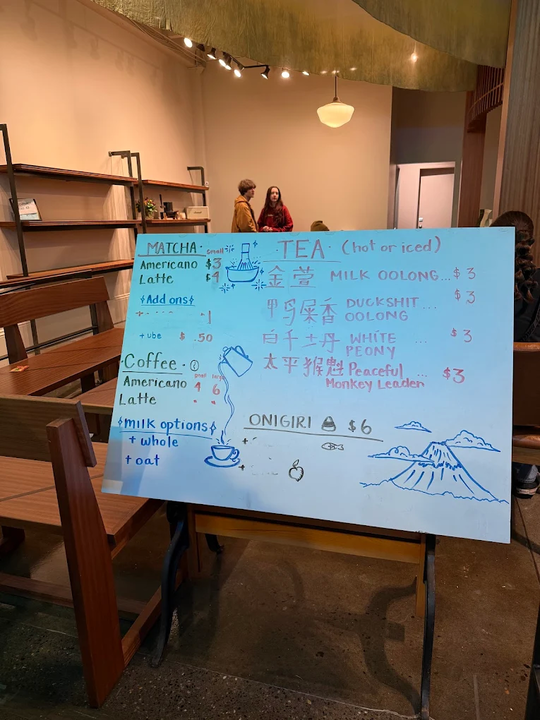 MATCHA small
Americano $3
Latte $4
Add ons
+ ube $ .50
Coffee
small large
Americano 4 6
Latte
milk options
+ whole
+ oat
TEA (hot or iced)
金萱 MILK OOLONG... $3
鸭屎香 DUCKSHIT... $3
OOLONG
WHITE ... $3
PEONY
太平猴魁 Peaceful
Monkey Leader ... $3
ONIGIRI $6
+
+